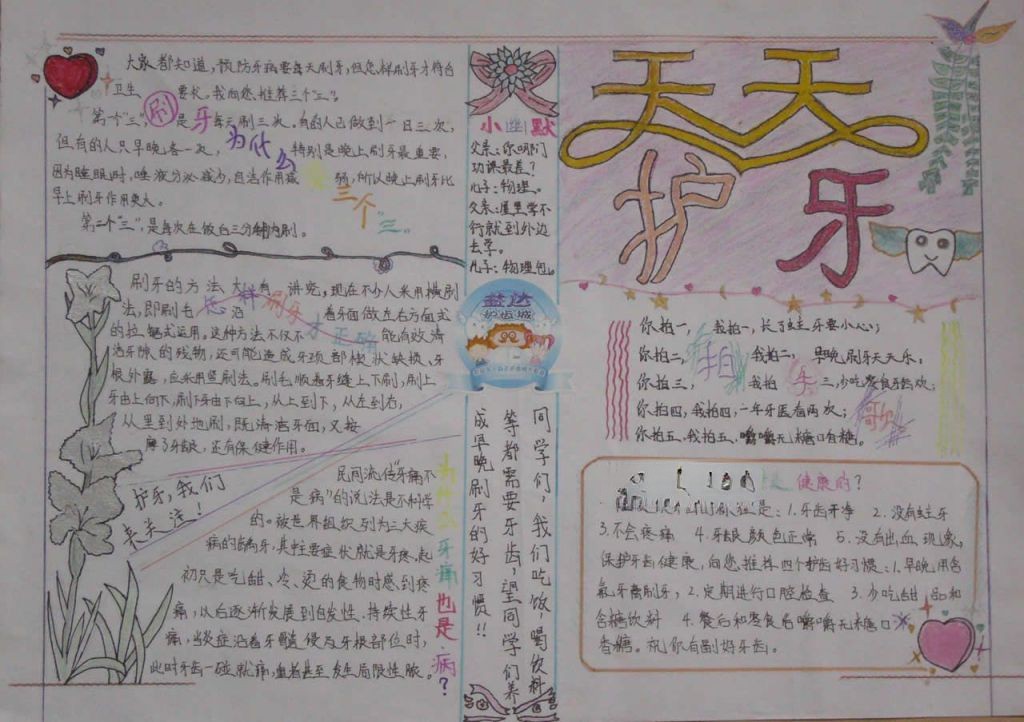 天天
护牙
大家都知道,预防牙病要每天刷牙,但怎样刷牙才符合
卫生 要求。我向您推荐三个“三”。
第一个“三”, 刷 是 牙 每天刷三次。有的人已做到一日三次,
但有的人只早晚各一次, 为什么 特别是晚上刷牙最重要,
因为睡眠时,唾液分泌减少,自洁作用减 弱,所以晚上刷牙比
早上刷牙作用更大。
三个“三”。
第二个“三”,是每次在饭后三分钟内刷。
刷牙的方法大有讲究,现在不少人采用横刷
法,即刷毛 沿 着牙面做左右方向式
怎样刷牙才正确
的拉锯式运用。这种方法不仅不 能有效清
洁牙隙的残物,还可能造成牙颈部楔状缺损、牙
根外露,应采用竖刷法。刷毛顺着牙缝上下刷,刷上
牙由上向下,刷下牙由下向上,从上到下,从左到右,
从里到外地刷,既清洁牙面,又按
摩了牙龈,还有保健作用。
护牙,我们
来关注!
为什么牙痛也是病?
民间流传“牙痛不
是病”的说法是不科学
的。被世界组织列为三大疾
病的龋牙,其主要症状就是牙疼,起
初只是吃甜、冷、烫的食物时感到疼
痛,以后逐渐发展到自发性、持续性牙
痛,当炎症沿着牙髓侵及牙根部位时,
此时牙齿一碰就痛,重者甚至发生局限性脓。
小幽默
父亲:你哪门
功课最差?
儿子:物理。
父亲:屋里学不
行就到外边
去学。
儿子:物理包。
益达
护齿城
同学们,我们吃饭,喝饮料
等都需要牙齿,望同学们养
成早晚刷牙的好习惯!!
拍
手
歌
你拍一,我拍一,长了蛀牙要小心;
你拍二,我拍二,早晚刷牙天天乐;
你拍三,我拍三,少吃零食牙喜欢;
你拍四,我拍四,一年牙医看两次;
你拍五,我拍五,嚼嚼无糖口香糖。
健康的?
是:1.牙齿干净 2.没有蛀牙
3.不会疼痛 4.牙龈颜色正常 5.没有出血现象,
保护牙齿健康,向您推荐四个护齿好习惯:1.早晚用含
氟牙膏刷牙,2.定期进行口腔检查 3.少吃甜品和
含糖饮料 4.餐后和零食后嚼嚼无糖口
香糖。祝你有副好牙齿。